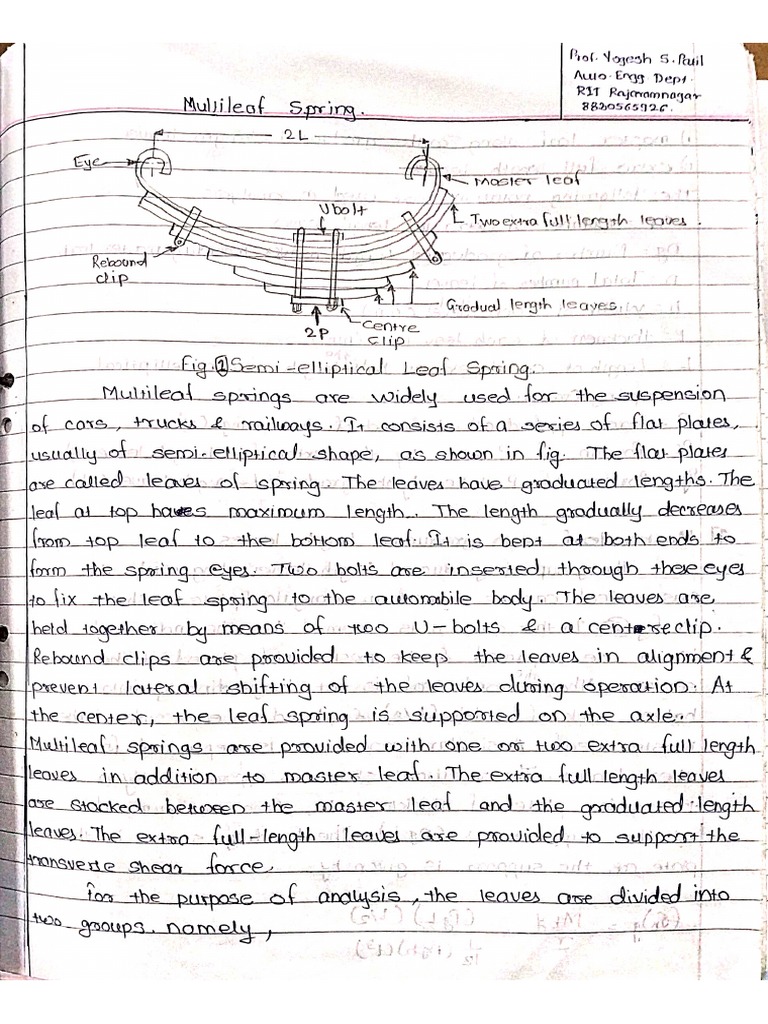 Prof. Yogesh S. Patil
Auto. Engg Dept.
RIT Rajaramnagar
8820565926.
Multileaf Spring.
2L
Eye
Master leaf
U bolt
Two extra full length leaves.
Rebound
clip
Gradual length leaves.
Centre
clip
2P
Fig. 1 Semi-elliptical Leaf Spring.
Multileaf springs are widely used for the suspension
of cars, trucks & railways. It consists of a series of flat plates,
usually of semi-elliptical shape, as shown in fig. The flat plates
are called leaves of spring. The leaves have graduated lengths. The
leaf at top has maximum length. The length gradually decreases
from top leaf to the bottom leaf. It is bent at both ends to
form the spring eyes. Two bolts are inserted through these eyes
to fix the leaf spring to the automobile body. The leaves are
held together by means of two U-bolts & a centre clip.
Rebound clips are provided to keep the leaves in alignment &
prevent lateral shifting of the leaves during operation. At
the center, the leaf spring is supported on the axle.
Multileaf springs are provided with one or two extra full length
leaves in addition to master leaf. The extra full length leaves
are stacked between the master leaf and the graduated-length
leaves. The extra full-length leaves are provided to support the
transverse shear force.
For the purpose of analysis, the leaves are divided into
two groups. namely,